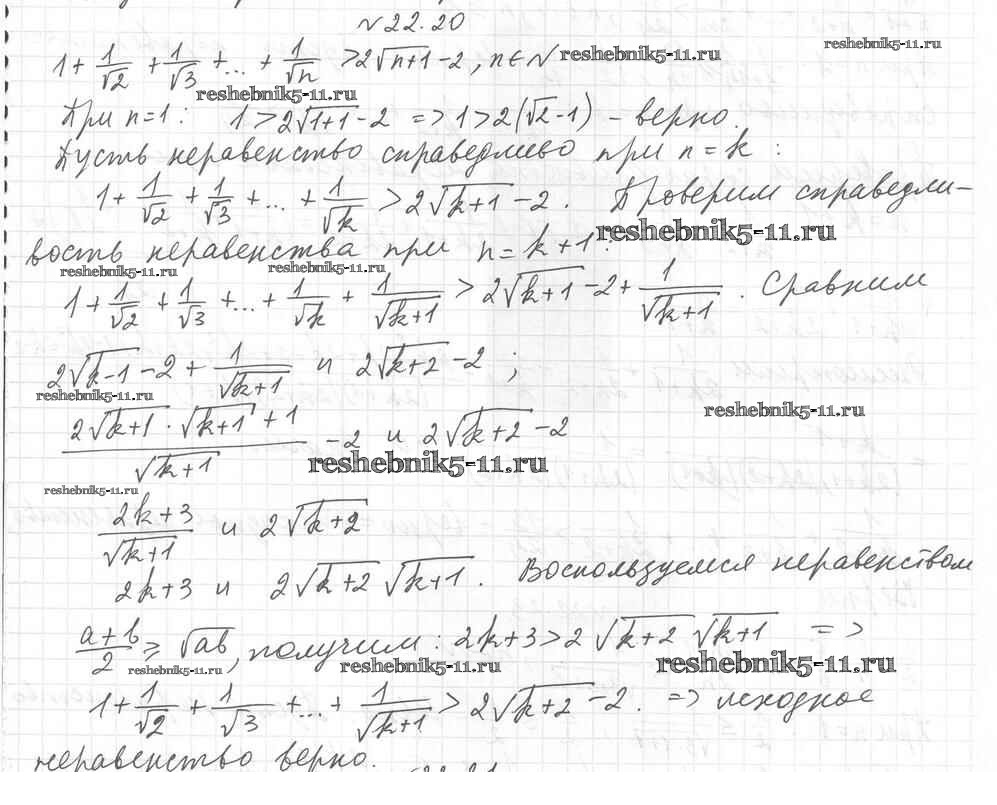 №22.20
1 + 1/√2 + 1/√3 + ... + 1/√n > 2√(n+1) - 2, n ∈ N reshebnik5-11.ru reshebnik5-11.ru
reshebnik5-11.ru
При n=1: 1 > 2√(1+1) - 2 => 1 > 2(√2 - 1) - верно.
Пусть неравенство справедливо при n = k :
1 + 1/√2 + 1/√3 + ... + 1/√k > 2√(k+1) - 2. Проверим справедли-
вость неравенства при n = k+1: reshebnik5-11.ru
reshebnik5-11.ru reshebnik5-11.ru
1 + 1/√2 + 1/√3 + ... + 1/√k + 1/√(k+1) > 2√(k+1) - 2 + 1/√(k+1). Сравним
2√(k-1) - 2 + 1/√(k+1) и 2√(k+2) - 2;
reshebnik5-11.ru reshebnik5-11.ru
(2√(k+1) · √(k+1) + 1)/√(k+1) - 2 и 2√(k+2) - 2
reshebnik5-11.ru
reshebnik5-11.ru
(2k+3)/√(k+1) и 2√(k+2)
2k+3 и 2√(k+2) √(k+1). Воспользуемся неравенством
(a+b)/2 ≥ √ab, получим: 2k+3 > 2√(k+2) √(k+1) =>
reshebnik5-11.ru reshebnik5-11.ru reshebnik5-11.ru
1 + 1/√2 + 1/√3 + ... + 1/√(k+1) > 2√(k+2) - 2. => исходное
неравенство верно.